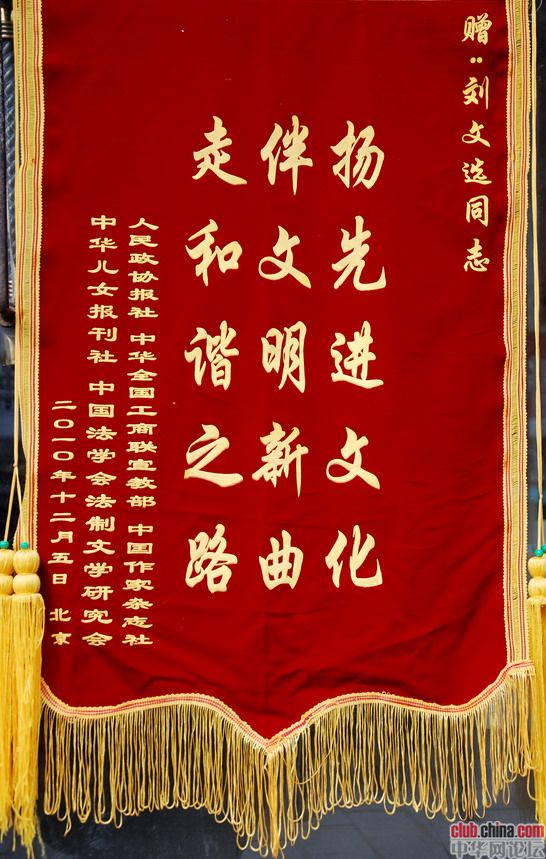 赠：刘文选同志
扬先进文化
伴文明新曲
走和谐之路
人民政协报社 中华全国工商联宣教部 中国作家杂志社
中华儿女报刊社 中国法学会法制文学研究会
二〇一〇年十二月五日 北京
club.china.com
中华网论坛